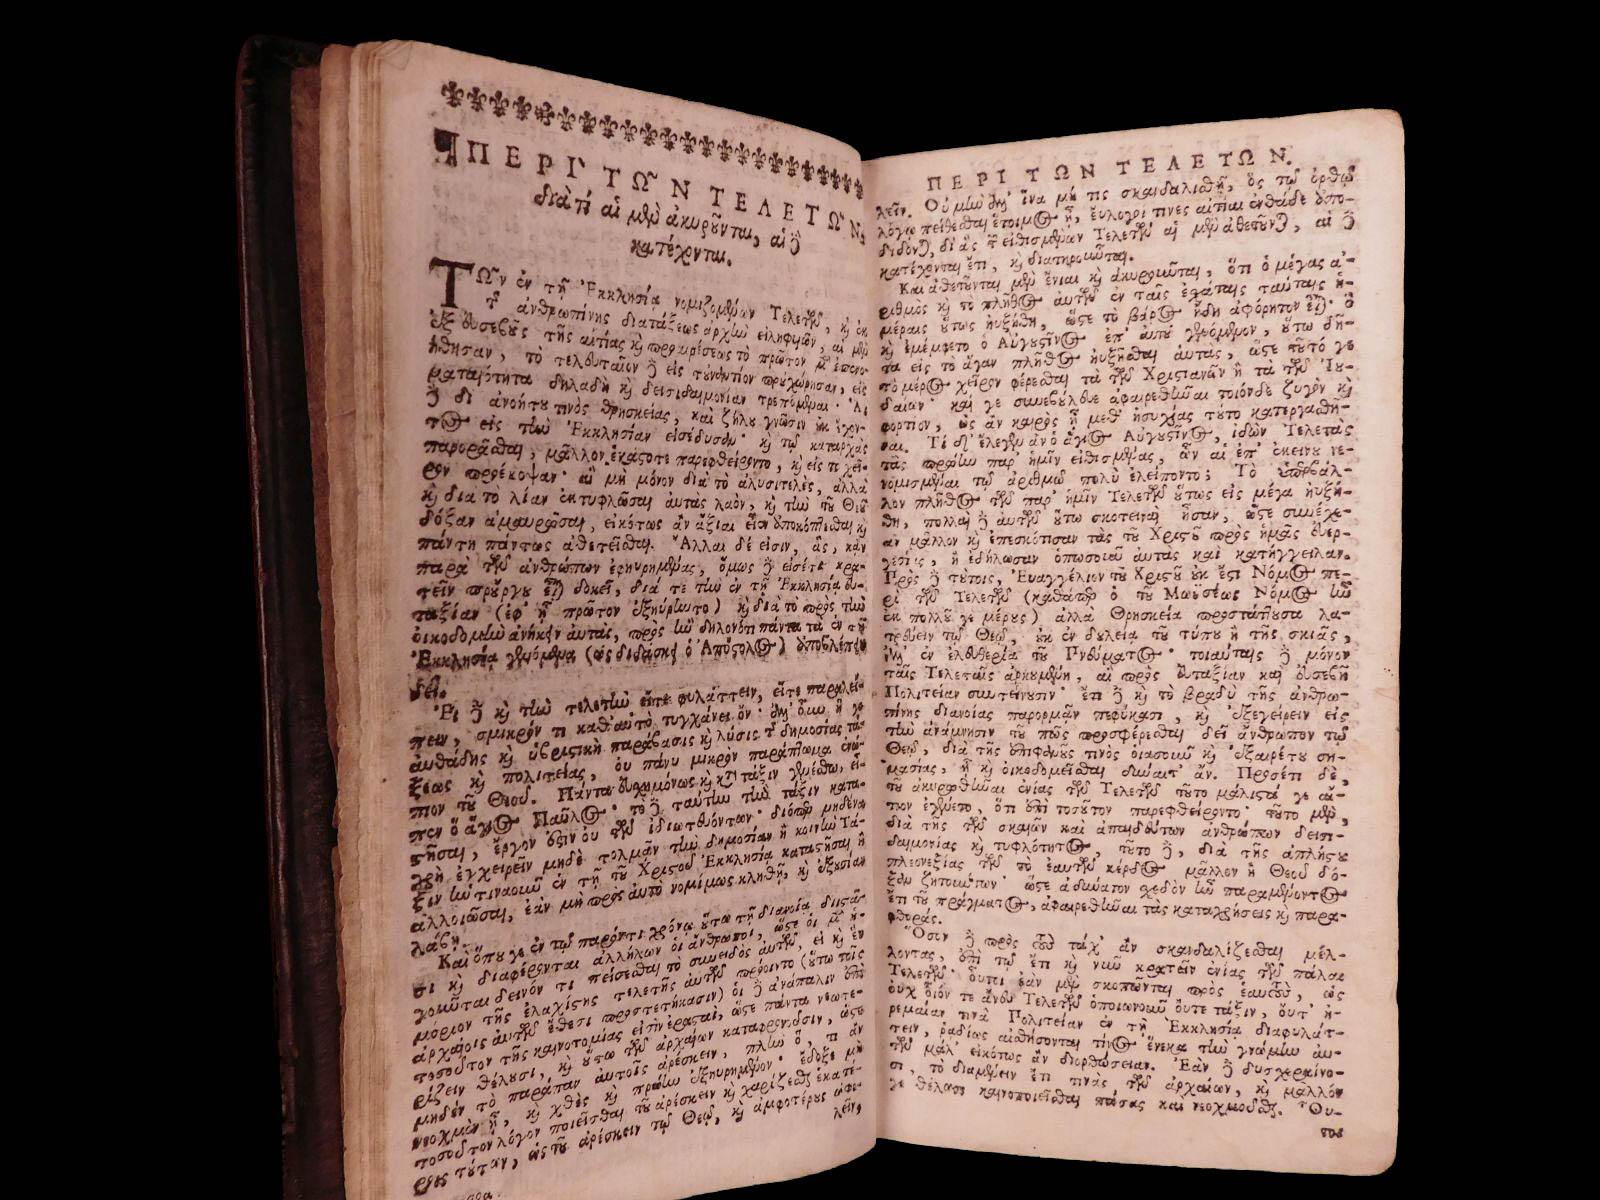 ΠΕΡΙ` ΤΩ͂Ν ΤΕΛΕΤΩ͂Ν,
διὰ τί αἱ μὲν ἀκυροῦνται, αἱ δὲ
κατέχονται.
ΤΩ͂ν ἐν τῇ Ἐκκλησίᾳ νομιζομένων Τελετῶν, καὶ ἐκ
τῆς ἀνθρωπίνης διατάξεως ἀρχὴν εἰληφυιῶν, αἱ μὲν
ἐξ εὐσεβοῦς τῆς αἰτίας καὶ προαιρέσεως τὸ πρῶτον
τὸ τελευταῖον δὲ εἰς τὐναντίον προὐχώρησαν, εἰς
ματαιότητα δηλαδὴ καὶ δεισιδαιμονίαν τρεπόμεναι· Αἱ
δὲ δι' ἀνοήτου τινὸς θρησκείας, καὶ ζήλου γνῶσιν οὐκ ἔχον-
τος εἰς τὴν Ἐκκλησίαν εἰσέδυσαν· καὶ τῷ καταρχὰς
παρορᾶσθαι, μᾶλλον ἑκάστοτε παρεφθείροντο, καὶ εἰς τι χεῖ-
ρον προέκοψαν· αἳ μὴ μόνον διὰ τὸ ἀλυσιτελὲς, ἀλλὰ
καὶ διὰ τὸ λίαν ἐκτυφλῶσαι αὐτὰς λαὸν, καὶ τὴν τοῦ Θεοῦ
δόξαν ἀμαυρῶσαι, εἰκότως ἂν ἄξιαι εἶεν ἀποκόπτεσθαι καὶ
πάντη πάντως ἀθετεῖσθαι. Ἄλλαι δέ εἰσιν, ἃς, κἂν
παρὰ τῶν ἀνθρώπων ἐφηυρημένας, ὅμως δὲ εἰσέτι κρα-
τεῖν προὔργου εἶναι δοκεῖ, διά τε τὴν ἐν τῇ Ἐκκλησίᾳ εὐ-
ταξίαν (ἐφ' ᾗ πρῶτον ἐξηύρηντο) καὶ διὰ τὸ πρὸς τὴν
οἰκοδομὴν ἀνήκειν αὐτὰς, πρὸς ἣν δηλονότι πάντα τὰ ἐν τῇ
Ἐκκλησίᾳ γενόμενα (ὡς διδάσκει ὁ Ἀπόστολος) ἀποβλέπειν
δεῖ.
Εἰ δὲ καὶ τὴν τελετὴν εἴτε φυλάττειν, εἴτε παραλεί-
πειν, σμικρόν τι καθ' αὑτὸ τυγχάνει ὄν· ἀλλ' ὅμως ἥ γε
αὐθάδης καὶ ὑβριστικὴ παράβασις καὶ λύσις τῆς δημοσίας τά-
ξεως καὶ πολιτείας, οὐ πάνυ μικρὸν παράπτωμα ἐνώ-
πιον τοῦ Θεοῦ. Πάντα εὐσχημόνως καὶ κατὰ τάξιν γενέσθω, εἶ-
πεν ὁ ἅγιος Παῦλος· τὸ δὲ ταύτην τὴν τάξιν κατα-
στῆσαι, ἔργον ἐστὶν οὐ τῶν ἰδιωτευόντων· διόπερ μηδένα
χρὴ ἐγχειρεῖν μηδὲ τολμᾶν τὴν δημοσίαν ἢ κοινὴν Τά-
ξιν ἡντιναοῦν ἐν τῇ τοῦ Χριστοῦ Ἐκκλησίᾳ καταστῆσαι ἢ
ἀλλοιῶσαι, ἐὰν μὴ πρὸς αὐτὸ νομίμως κληθῇ, καὶ ἐξουσίαν
λάβῃ.
Καὶ ὅπου γε ἐν τῷ παρόντι χρόνῳ οὕτω τῇ διανοίᾳ διιστᾶ-
σι καὶ διαφέρονται ἀλλήλων οἱ ἄνθρωποι, ὥστε οἱ μὲν ἡ-
γοῦνται δεινόν τι πείσεσθαι τὸ συνειδὸς αὐτῶν, εἰ καὶ ἓν
μόριον τῆς ἐλαχίστης τελετῆς αὐτῶν πρόοιντο (οὕτω τοῖς
ἀρχαίοις αὐτῶν ἔθεσι προστετήκασιν) οἱ δὲ ἀνάπαλιν ἐπὶ
τοσοῦτον τῆς καινοτομίας εἰσὶν ἐρασταὶ, ὥστε πάντα νεωτε-
ρίζειν θέλουσι, καὶ οὕτω τῶν ἀρχαίων καταφρονοῦσιν, ὥστε
μηδὲν τὸ παράπαν αὐτοῖς ἀρέσκειν, πλὴν ὅ, τι ἂν
νεοχμὸν ᾖ, καὶ χθὲς καὶ πρώην ἐξηυρημένον· ἔδοξε μὴ
τοσοῦτον λόγον ποιεῖσθαι τοῦ ἀρέσκειν καὶ χαρίζεσθαι ἑκατέ-
ροις τούτων, ὡς τοῦ ἀρέσκειν τῷ Θεῷ, καὶ ἀμφοτέρους ὠφε-
λεῖν,
ΠΕΡΙ ΤΩΝ ΤΕΛΕΤΩΝ.
λεῖν. Οὐ μὴν ἀλλ' ἵνα μή τις σκανδαλισθῇ, ὃς τῷ ὀρθῷ
λόγῳ πείθεσθαι ἕτοιμος ᾖ, εὔλογοί τινες αἰτίαι ἐνθάδε ἀπο-
δίδονται, δι' ἃς τῶν εἰθισμένων Τελετῶν αἱ μὲν ἀθετοῦνται, αἱ δὲ
κατέχονται ἔτι, καὶ διατηροῦνται.
Καὶ ἀθετοῦνται μὲν ἔνιαι καὶ ἀκυροῦνται, ὅτι ὁ μέγας ἀ-
ριθμὸς καὶ τὸ πλῆθος αὐτῶν ἐν ταῖς ἐσχάταις ταύταις ἡ-
μέραις οὕτως ηὐξήθη, ὥστε τὸ βάρος ἤδη ἀφόρητον εἶναι· ὃ
καὶ ἐμέμφετο ὁ Αὐγουστῖνος ἐπ' αὐτοῦ γενόμενον, οὕτω δῆ-
τα εἰς τὸ ἄγαν πλῆθος ηὐξῆσθαι αὐτὰς, ὥστε τοῦτό γε
τὸ μέρος χεῖρον φέρεσθαι τὰ τῶν Χριστιανῶν ἢ τὰ τῶν Ἰου-
δαίων· καί γε συνεβούλευε ἀφαιρεθῆναι τοιόνδε ζυγὸν καὶ
φορτίον, ὡς ἂν καιρὸς ᾖ μεθ' ἡσυχίας τοῦτο κατεργασθῆ-
ναι. Τί δ' ἔλεγεν ἂν ὁ ἅγιος Αὐγουστῖνος, ἰδὼν Τελετὰς
τὰς πρώην παρ' ἡμῖν εἰθισμένας, ὧν αἱ ἐπ' ἐκείνου νε-
νομισμέναι τῷ ἀριθμῷ πολὺ ἐλείποντο; Τὸ ὑπερβάλ-
λον πλῆθος τῶν παρ' ἡμῖν Τελετῶν οὕτως εἰς μέγα ηὐξή-
θη, πολλαὶ δὲ αὐτῶν οὕτω σκοτειναὶ ἦσαν, ὥστε συνέχε-
αν μᾶλλον καὶ ἐπεσκότισαν τὰς τοῦ Χριστοῦ πρὸς ἡμᾶς εὐερ-
γεσίας, ἢ ἐδήλωσαν ὁπωσοῦν αὐτὰς καὶ κατήγγειλαν.
Πρὸς δὲ τούτοις, Εὐαγγέλιον τοῦ Χριστοῦ οὐκ ἔστι Νόμος πε-
ρὶ τῶν Τελετῶν (καθάπερ ὁ τοῦ Μωϋσέως Νόμος ἦν
ἐκ πολλοῦ γε μέρους) ἀλλὰ Θρησκεία προστάττουσα λα-
τρεύειν τῷ Θεῷ, οὐκ ἐν δουλείᾳ τοῦ τύπου ἢ τῆς σκιᾶς,
ἀλλ' ἐν ἐλευθερίᾳ τοῦ Πνεύματος· τοιαύταις δὲ μόνον
ταῖς Τελεταῖς ἀρκουμένη, αἳ πρὸς Εὐταξίαν καὶ εὐσεβῆ
Πολιτείαν συντείνουσιν· ἔτι δὲ καὶ τὸ βραδὺ τῆς ἀνθρω-
πίνης διανοίας παρορμᾶν πεφύκασι, καὶ ἐξεγείρειν εἰς
τὴν ἀνάμνησιν τοῦ πῶς προσφέρεσθαι δεῖ ἄνθρωπον τῷ
Θεῷ, διὰ τῆς ἐπιφανοῦς τινὸς ὁιασοῦν καὶ ἐξαιρέτου ση-
μασίας, ᾗ καὶ οἰκοδομεῖσθαι δύναιτ' ἄν. Προσέτι δὲ,
τοῦ ἀκυρωθῆναι ἐνίας τῶν Τελετῶν τοῦτο μάλιστά γε αἴ-
τιον ἐγένετο, ὅτι ἐπὶ τοσοῦτον παρεφθείροντο· τοῦτο μὲν,
διὰ τῆς τῶν σκαιῶν καὶ ἀπαιδεύτων ἀνθρώπων δεισι-
δαιμονίας καὶ τυφλότητος, τοῦτο δὲ, διὰ τῆς ἀπλήστου
πλεονεξίας τῶν τὸ ἑαυτῶν κέρδος μᾶλλον ἢ Θεοῦ δό-
ξαν ζητούντων· ὥστε ἀδύνατον σχεδὸν ἦν παραμένοντος
ἔτι τοῦ πράγματος, ἀφαιρεθῆναι τὰς καταχρήσεις καὶ παρα-
φθοράς.
Ὅσον δὲ πρὸς τοὺς τάχ' ἂν σκανδαλίζεσθαι μέλ-
λοντας, ἐπὶ τῷ ἔτι καὶ νῦν κρατεῖν ἐνίας τῶν πάλαι
Τελετῶν· οὗτοι ἐὰν μὲν σκοπῶνται πρὸς ἑαυτοὺς, ὡς
οὐχ οἷόν τε ἄνευ Τελετῶν ὁποιωνοῦν οὔτε τάξιν, οὔτ' ἠ-
ρεμαίαν τινὰ Πολιτείαν ἐν τῇ Ἐκκλησίᾳ διαφυλάτ-
τειν, ῥαδίως αἰσθήσονται τίνος ἕνεκα τὴν γνώμην αὐ-
τῶν μάλ' εἰκότως ἂν διορθώσειαν. Ἐὰν δὲ δυσχεραίνω-
σι, τὸ διαμένειν ἔτι τινὰς τῶν ἀρχαίων, καὶ μᾶλλόν
γε θέλωσι καινοποιεῖσθαι πάσας καὶ νεοχμοῦσθαι. Οὐ-
τοι